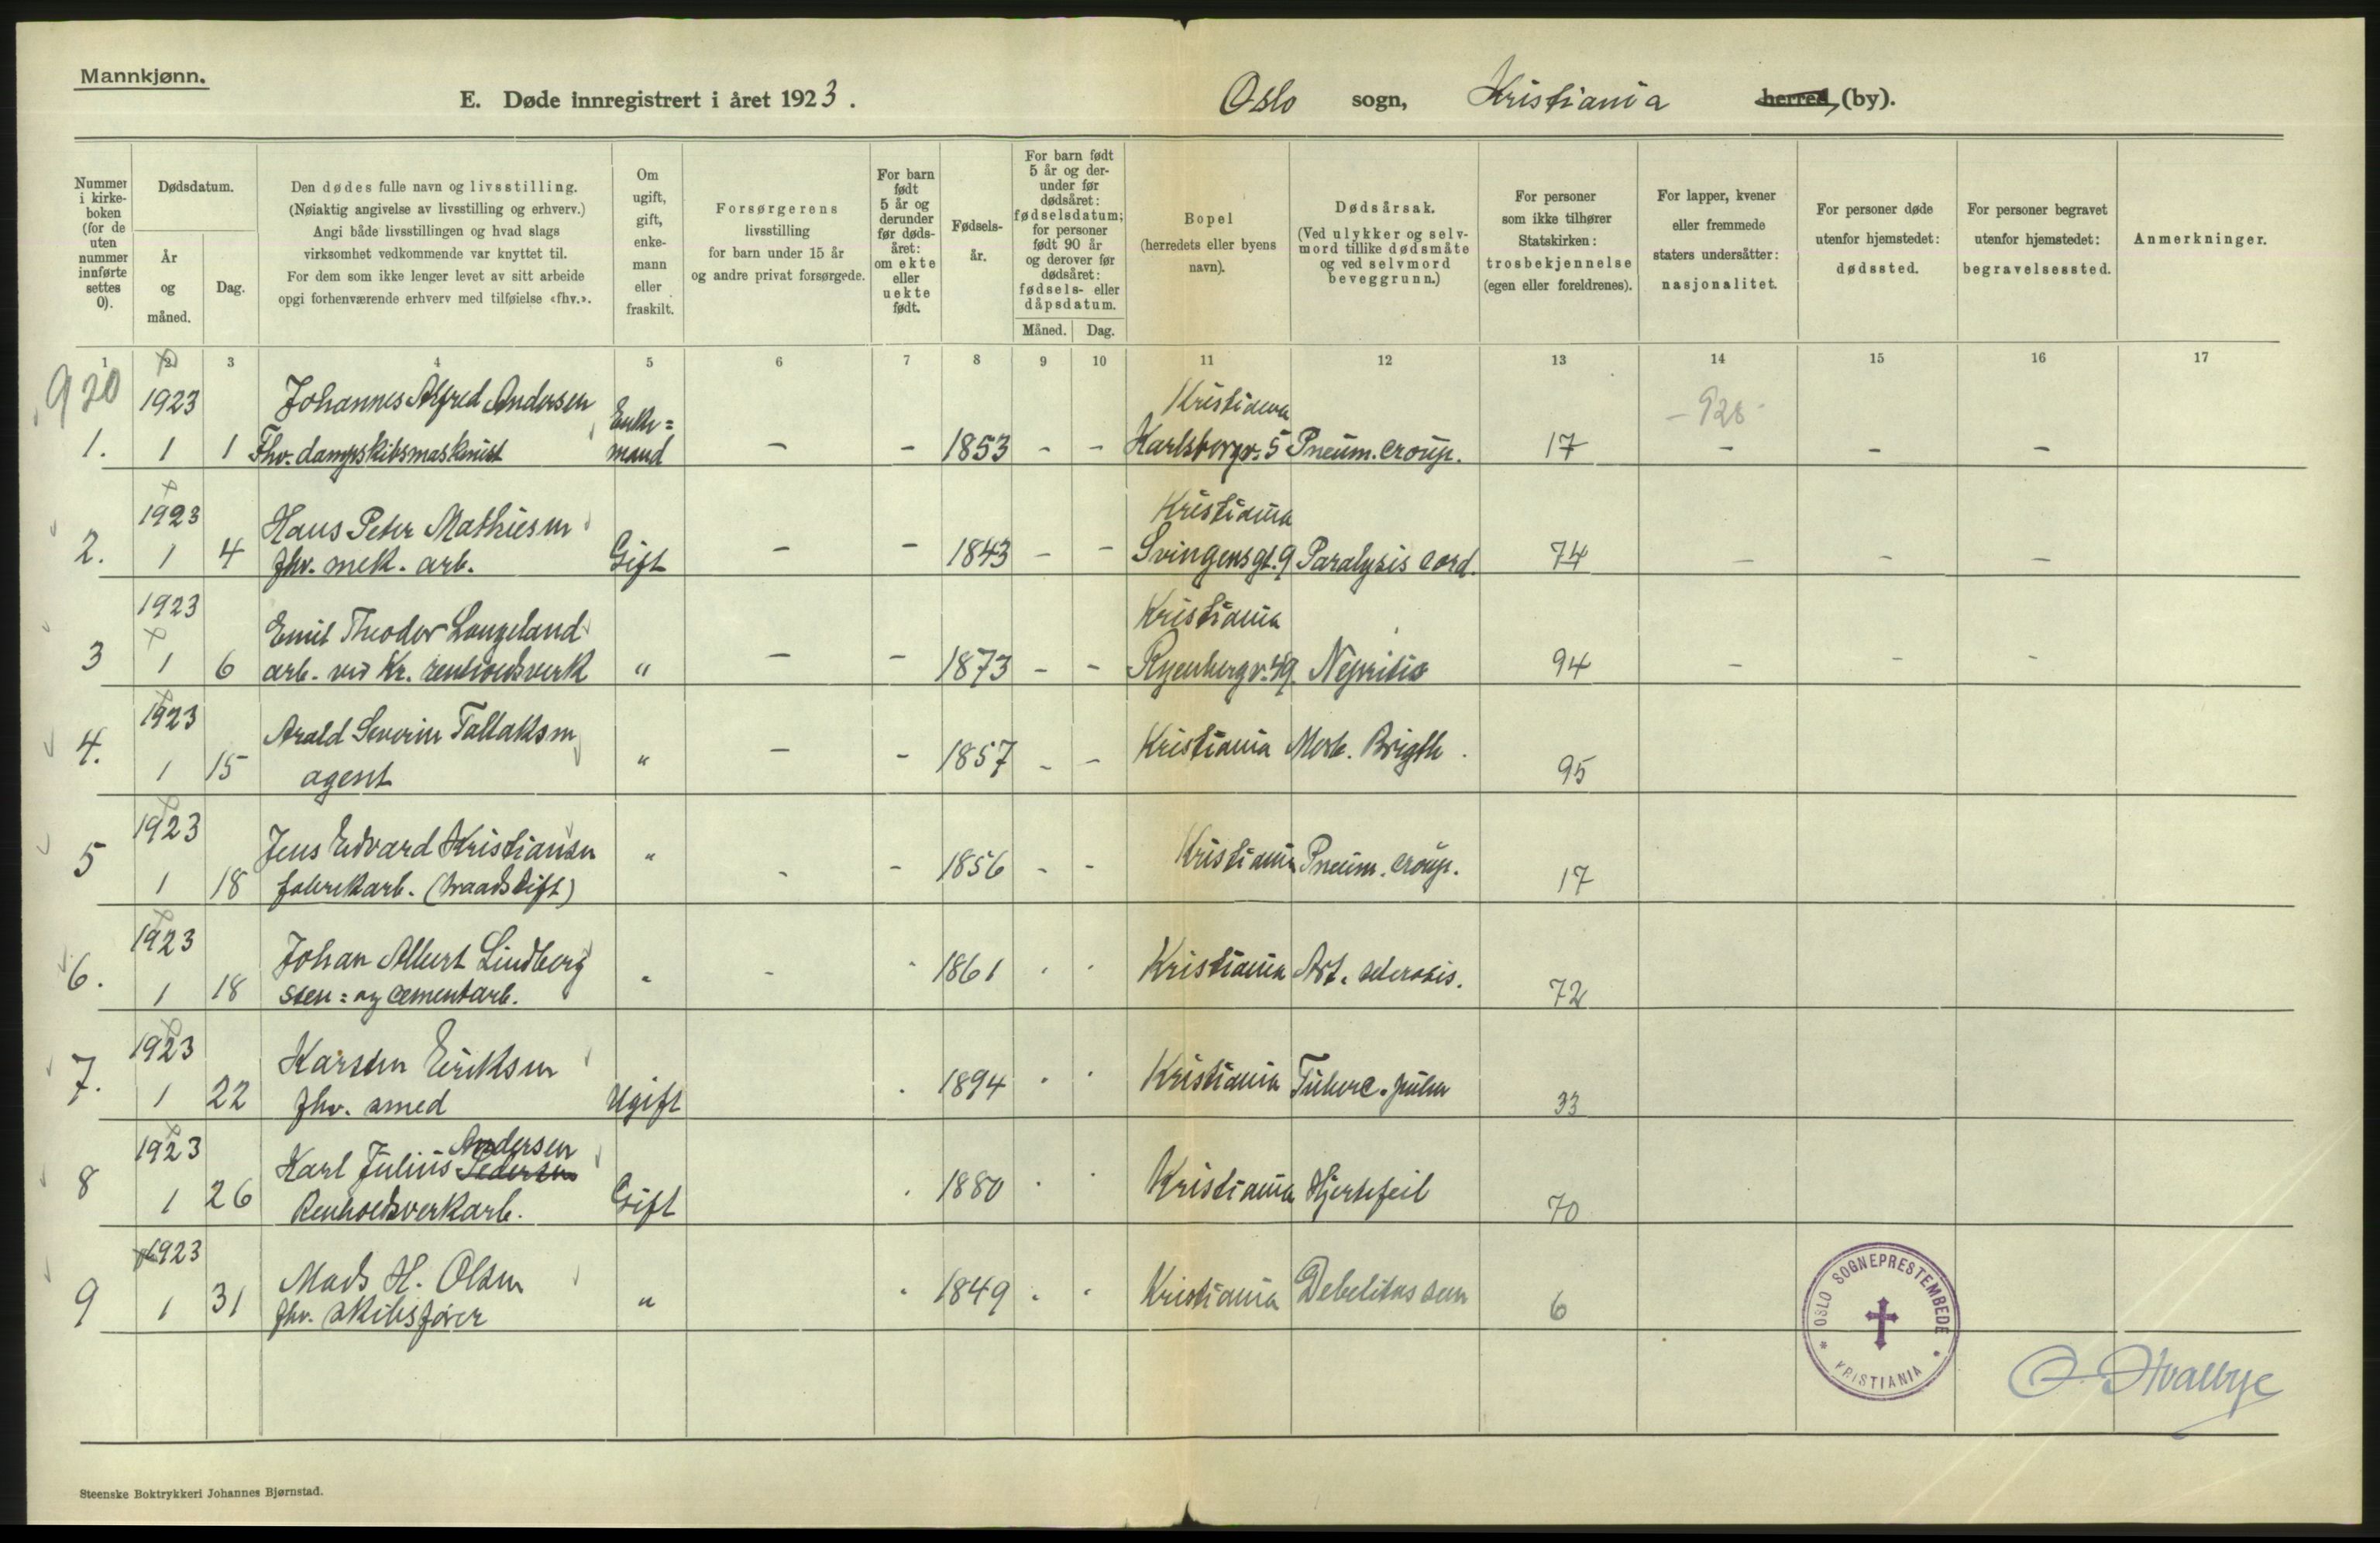 Mannkjønn.
E. Døde innregistrert i året 1923.
Oslo sogn, Kristiania herred, (by).
Nummer i kirke-boken (for de uten nummer innførte settes 0).
Dødsdatum.
År og måned.
Dag.
Den dødes fulle navn og livsstilling.
(Nøiaktig angivelse av livsstilling og erhverv.)
Angi både livsstillingen og hvad slags
virksomhet vedkommende var knyttet til.
For dem som ikke lenger levet av sitt arbeide
opgi forhenværende erhverv med tilføielse «fhv.».
Om ugift, gift, enke-mann eller fraskilt.
Forsørgerens
livsstilling
for barn under 15 år
og andre privat forsørgede.
For barn født 5 år og derunder før døds-året: om ekte eller uekte født.
Fødsels-år.
For barn født 5 år og der-under før dødsåret: fødselsdatum; for personer født 90 år og derover før dødsåret: fødsels- eller dåpsdatum.
Måned. Dag.
Bopel
(herredets eller byens
navn).
Dødsårsak.
(Ved ulykker og selv-
mord tillike dødsmåte
og ved selvmord
beveggrunn.)
For personer
som ikke tilhører
Statskirken:
trosbekjennelse
(egen eller foreldrenes).
For lapper, kvener
eller fremmede
staters undersåtter:
nasjonalitet.
For personer døde
utenfor hjemstedet:
dødssted.
For personer begravet
utenfor hjemstedet:
begravelsessted.
Anmerkninger.
1 2 3 4 5 6 7 8 9 10 11 12 13 14 15 16 17
920 1923 Johannes Alfred Andersen Enke= Kristiania - 928 -
1. 1 1 Fhv. dampskibsmaskinist mand - - 1853 - - Karlsborgv. 5 Pneum. croup. 17 - - -
1923 Hans Peter Mathiesen Kristiania
2. 1 4 fhv. mek. arb. Gift - - 1843 - - Svingensgt. 9 Paralysis cord. 74 - - -
1923 Emil Theodor Langeland Kristiania
3 1 6 arb. ved Kr. renholdsverk " - - 1873 - - Ryenbergv. 49. Nefritis 94 - - -
1923 Arald Severin Tallaksen
4. 1 15 agent " - - 1857 - - Kristiania Morb. Brigth. 95
1923 Jens Edvard Kristiansen
5 1 18 fabrikarb. (traadstift) " - - 1856 - - Kristiania Pneum. croup. 17
1923 Johan Albert Lindberg
6. 1 18 Sten= og cementarb. " - - 1861 - - Kristiania Art. sclerosis. 72
1923 Karsten Eriksen
7. 1 22 fhv. smed Ugift - 1894 - - Kristiania Tuberc. pulm 33
1923 Andersen
Karl Julius Pedersen
8 1 26 Renholdsverkarb. Gift - 1880 - - Kristiania Hjertefeil 70
1923 Mads H. Olsen
9 1 31 fhv. skibsfører " - 1849 - - Kristiania Debelitas sen 6
OSLO SOGNEPRESTEMBEDE * KRISTIANIA *
O. Hvalbye
Steenske Boktrykkeri Johannes Bjørnstad.